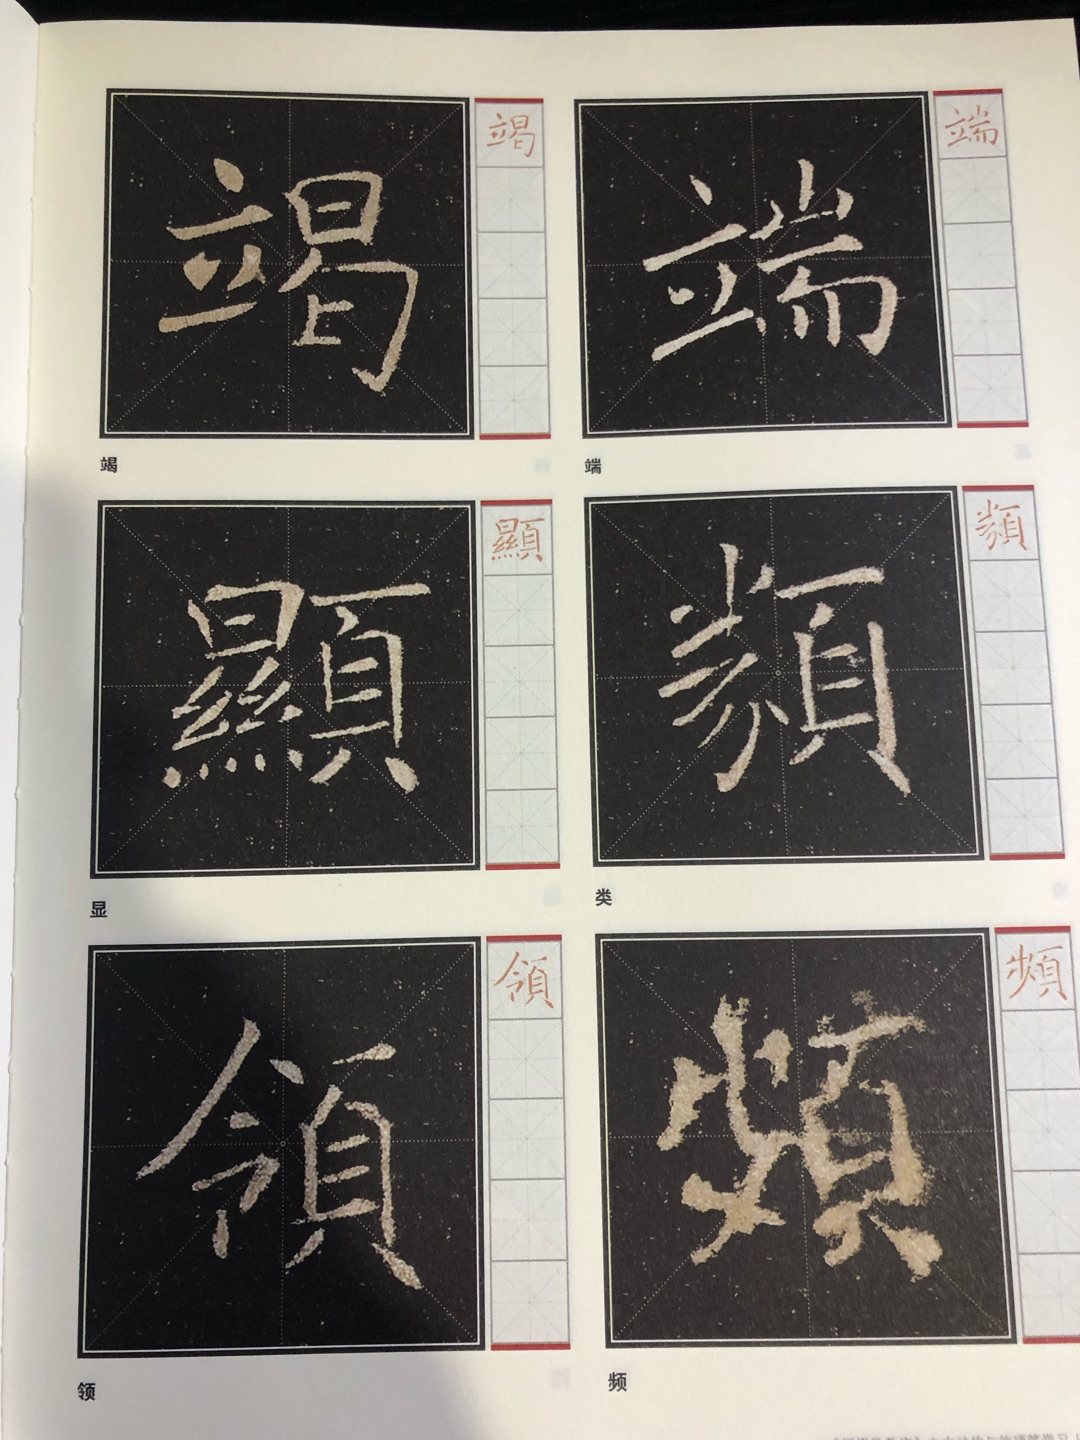 竭 竭 端 端
竭 端
顯 顯 類 類
显 类
領 領 頻 頻
领 频